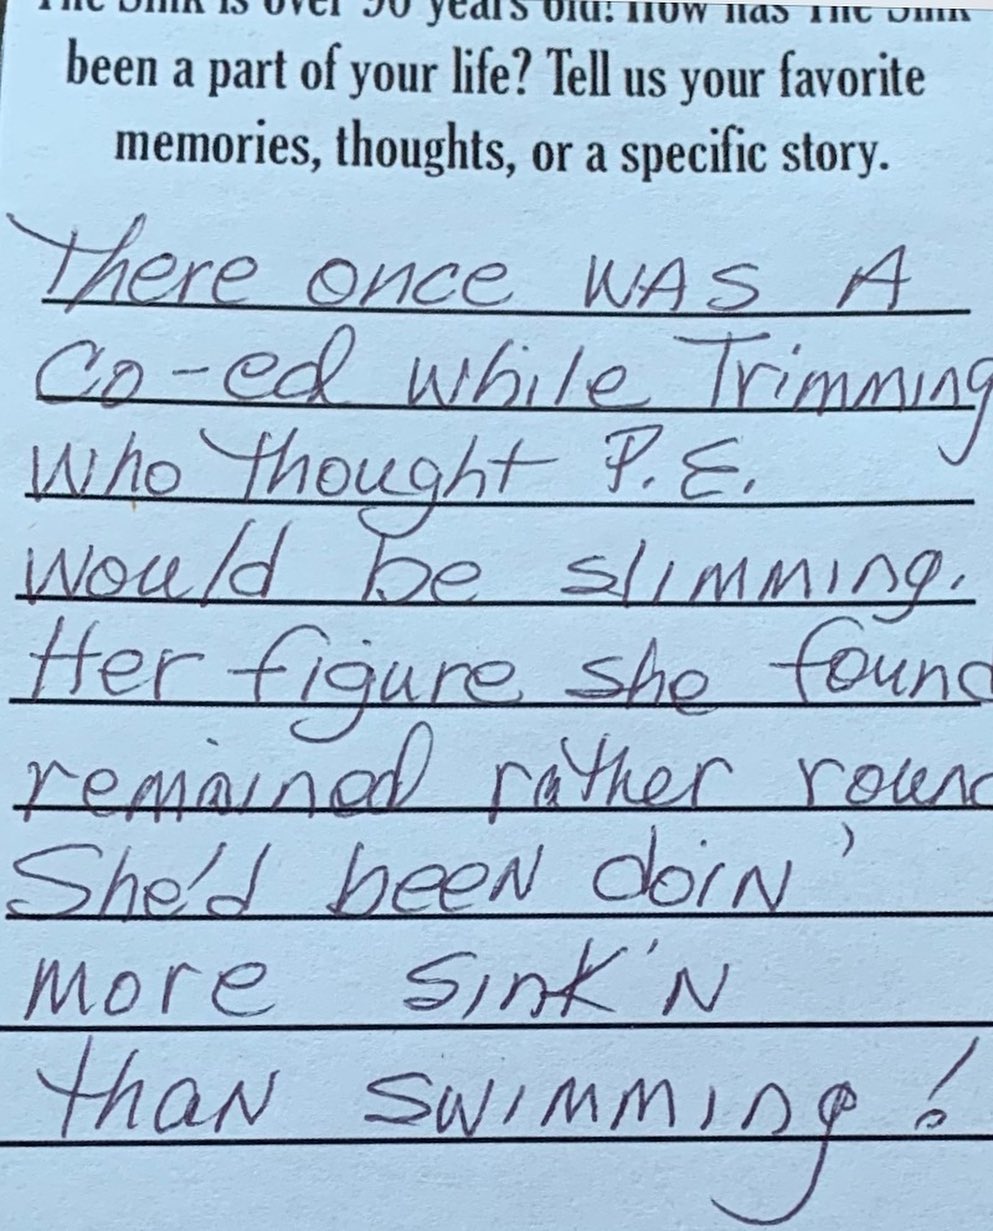 The Sink is over 90 years old! How has The Sink
been a part of your life? Tell us your favorite
memories, thoughts, or a specific story.
There once WAS A
Co-ed while Trimming
Who thought P.E.
would be slimming.
Her figure she found
remained rather round
She'd been doin'
more Sink'N
than swimming!